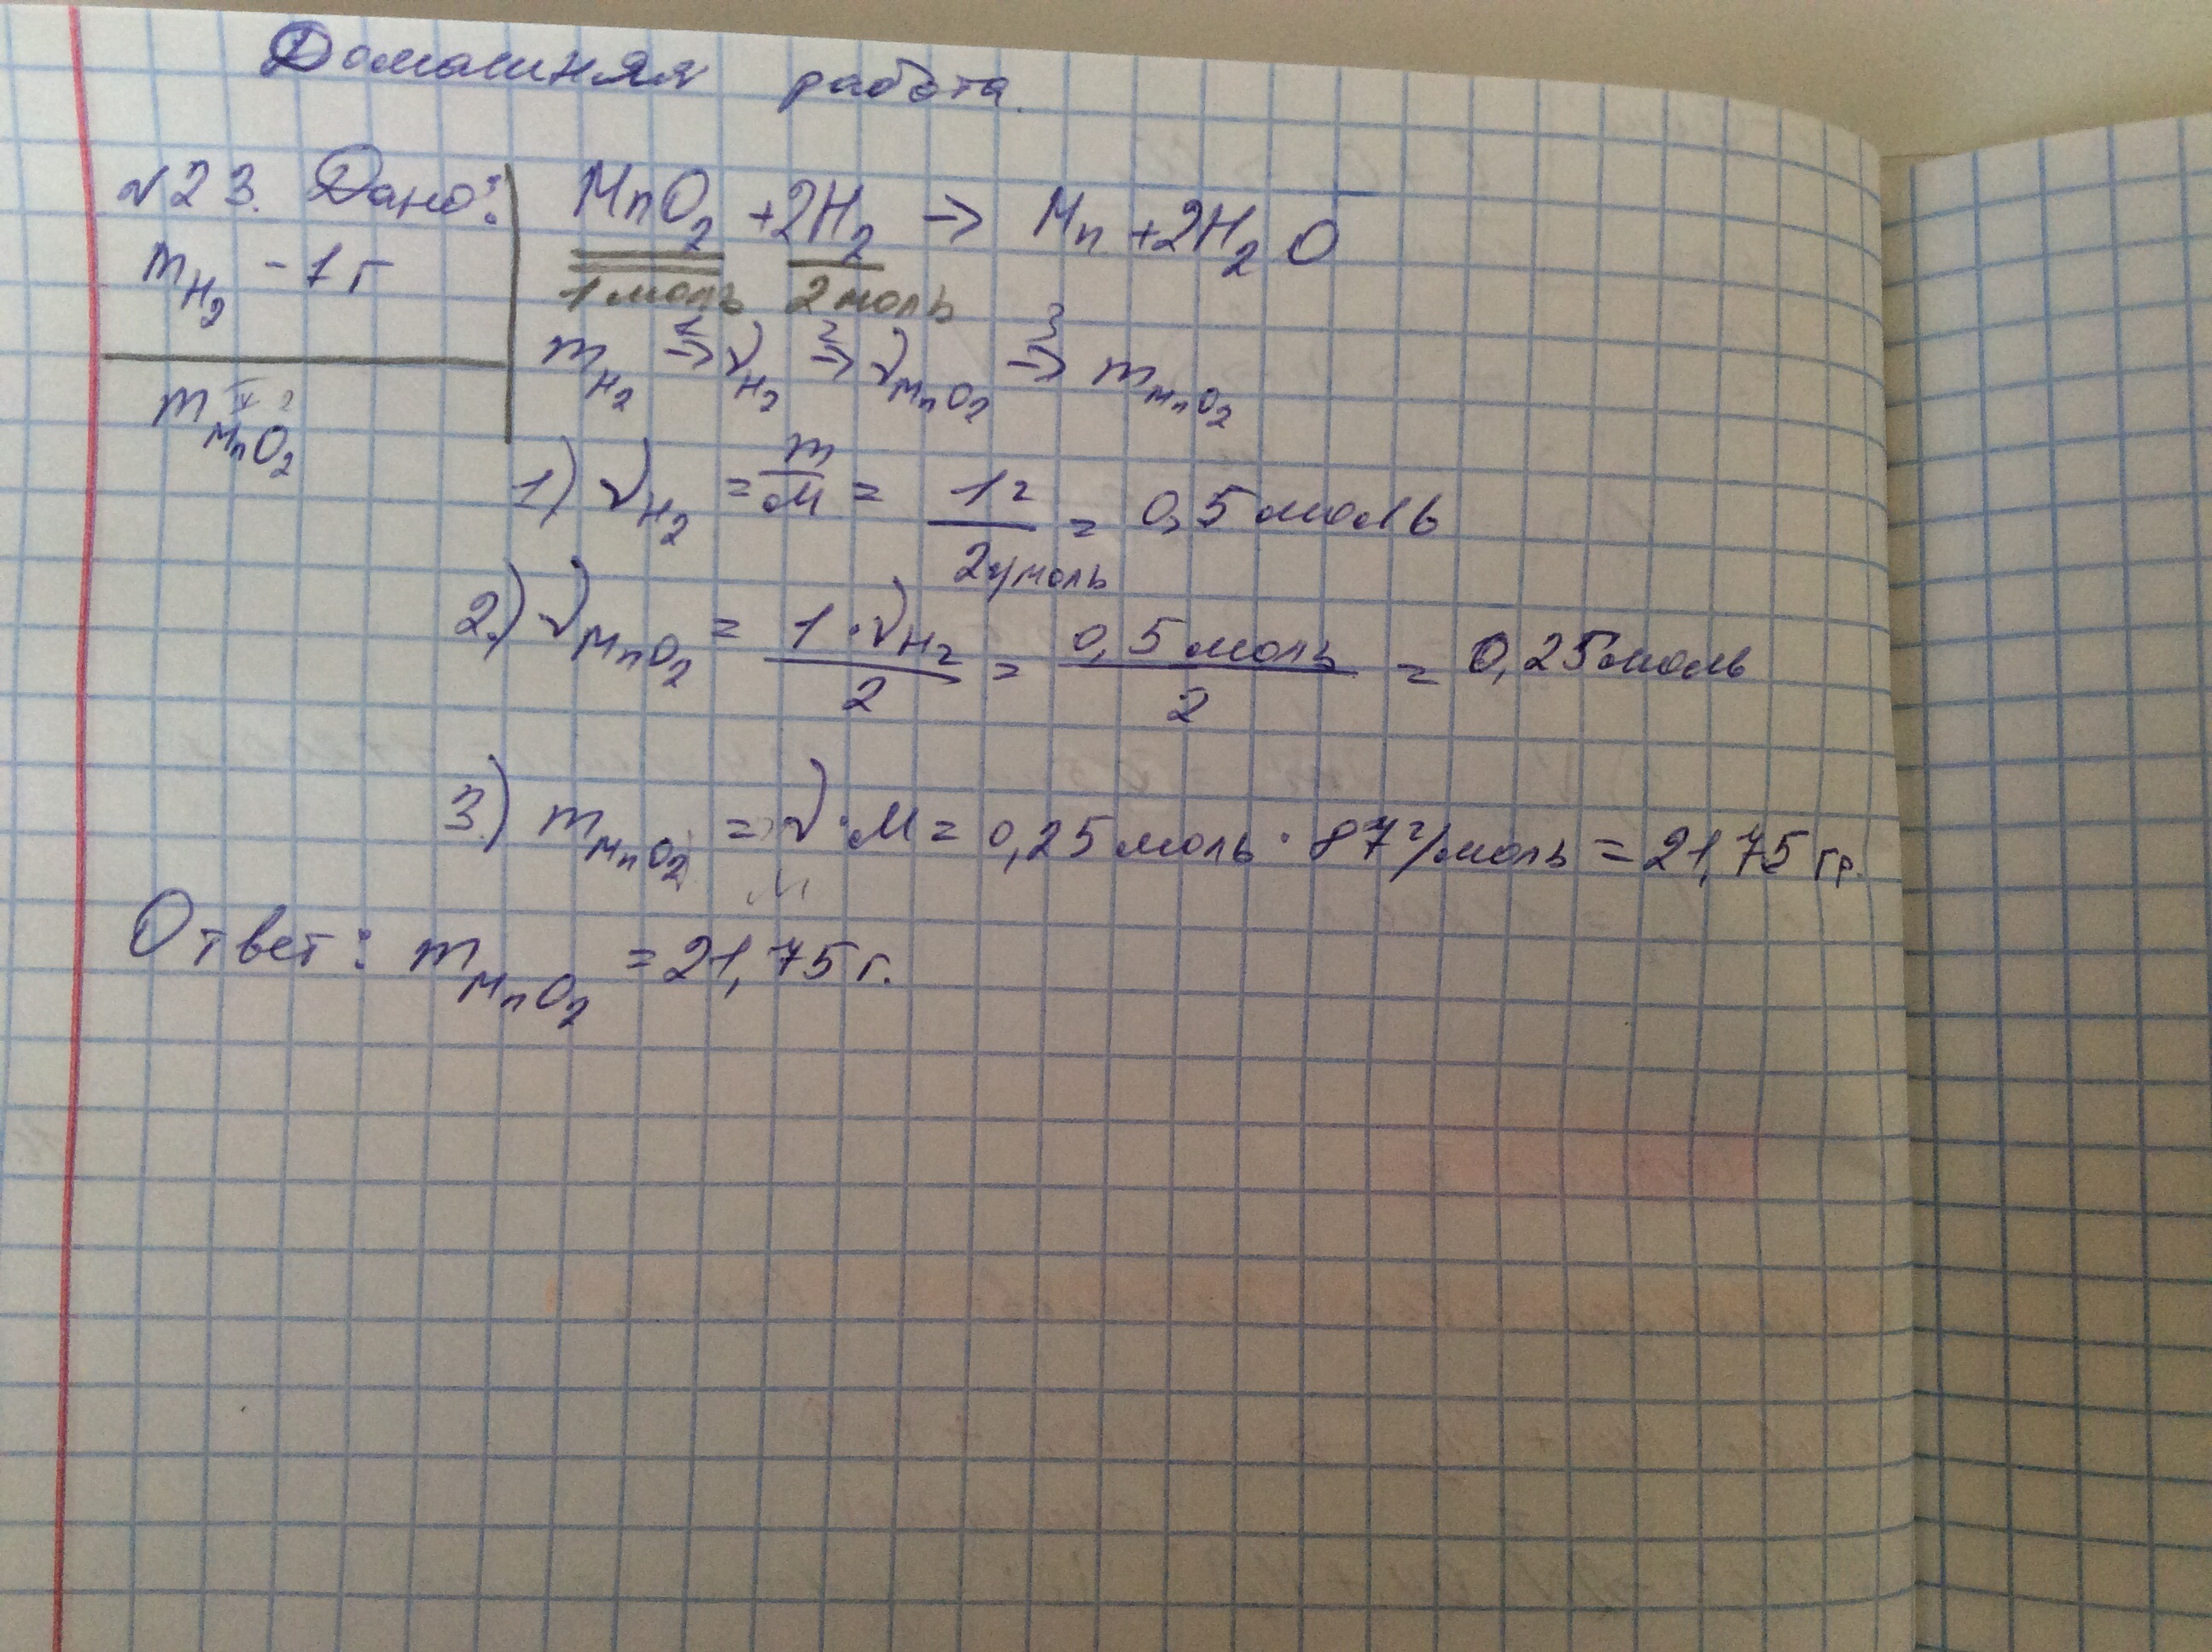 Домашняя работа.
№23. Дано:
m H₂ - 1 г
m MnO₂
MnO₂ + 2H₂ → Mn + 2H₂O
1 моль 2 моль
m H₂ →¹ ν H₂ →² ν MnO₂ →³ m MnO₂
1) ν H₂ = m/M = 1г / 2г/моль = 0,5 моль
2) ν MnO₂ = 1·ν H₂ / 2 = 0,5 моль / 2 = 0,25 моль
3) m MnO₂ = ν·M = 0,25 моль · 87 г/моль = 21,75 гр.
Ответ: m MnO₂ = 21,75 г.